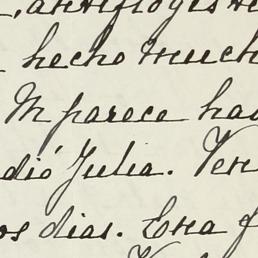 hecho much
M parece hac
dió Julia. Ven
os dias. Era f